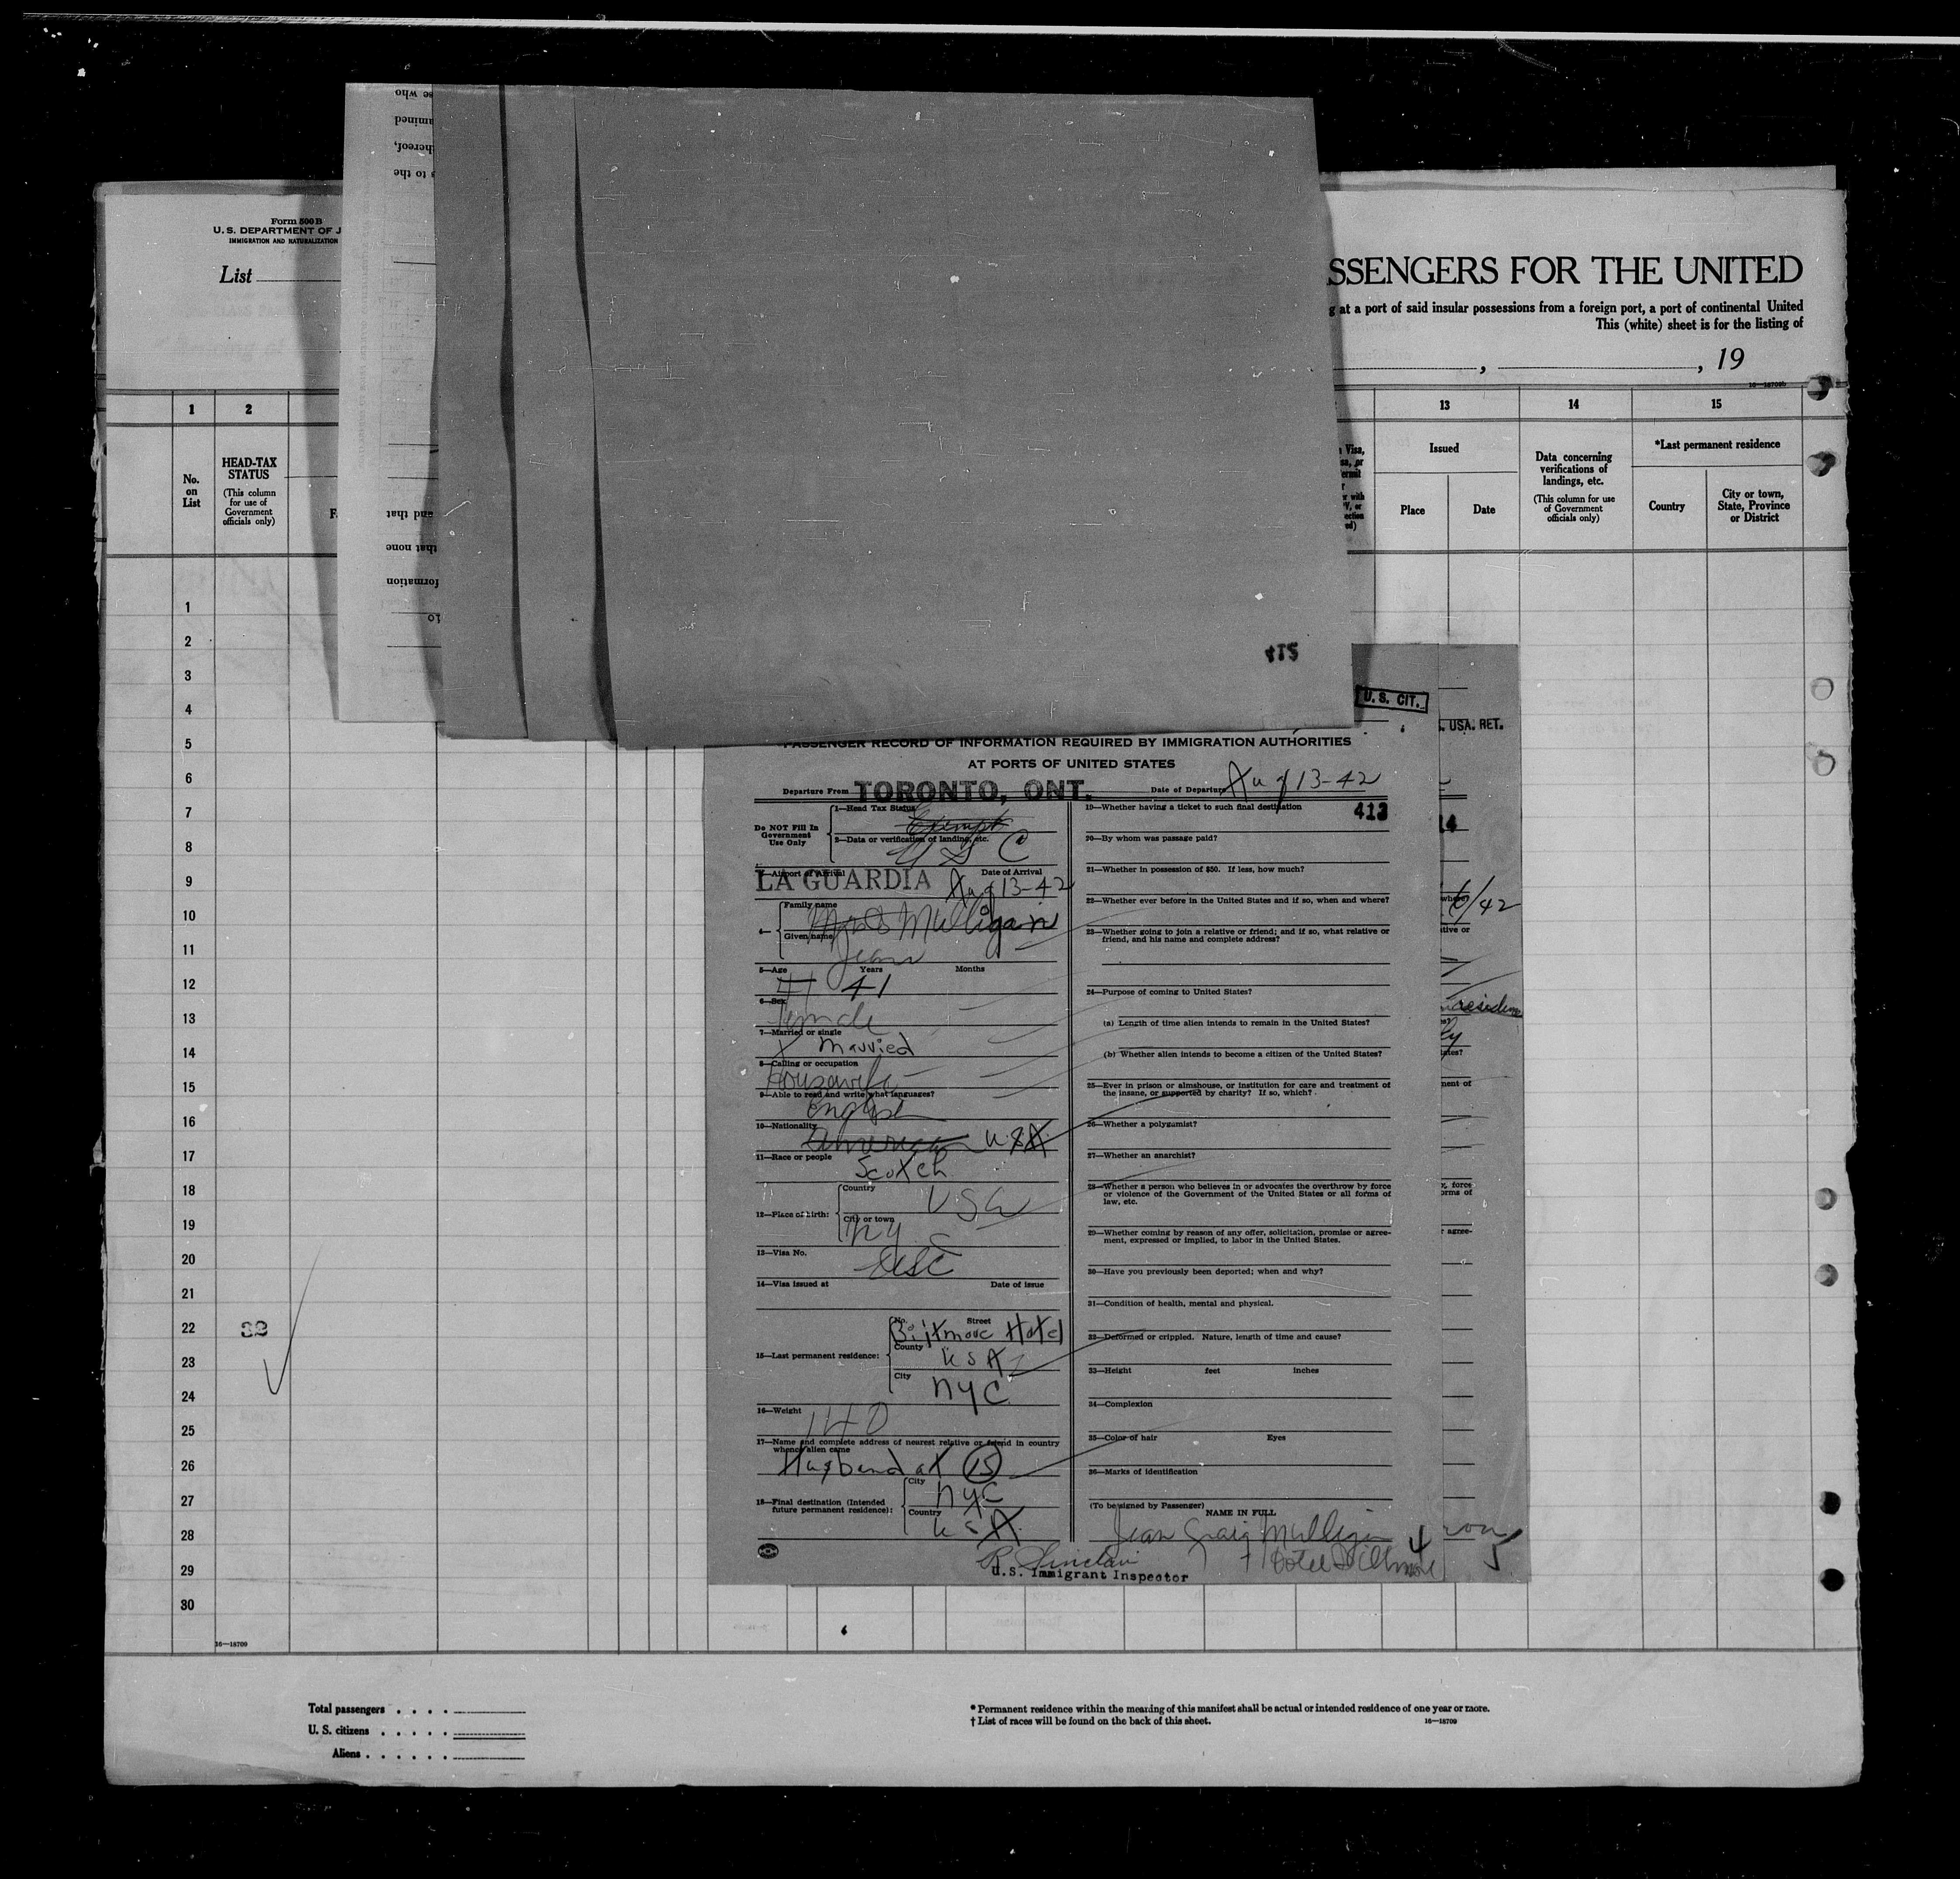 Form 500 B
U. S. DEPARTMENT OF J
IMMIGRATION AND NATURALIZATION
List
se who
amined
thereof,
s to the
and that
that none
formation
to
SSENGERS FOR THE UNITED
g at a port of said insular possessions from a foreign port, a port of continental United
This (white) sheet is for the listing of
, , 19
16—18709b
1 2 13 14 15
No. on List
HEAD-TAX STATUS
(This column for use of Government officials only)
F
Visa,
sa, or
ermit
r with
V, or
ection
ed)
Issued
Place
Date
Data concerning verifications of landings, etc.
(This column for use of Government officials only)
*Last permanent residence
Country
City or town, State, Province or District
1
2
3
4
5
6
7
8
9
10
11
12
13
14
15
16
17
18
19
20
21
22 32
23
24
25
26
27
28
29
30
16—18709
415
U. S. CIT.
USA. RET.
PASSENGER RECORD OF INFORMATION REQUIRED BY IMMIGRATION AUTHORITIES
AT PORTS OF UNITED STATES
Departure From TORONTO, ONT. Date of Departure Aug 13-42
Do NOT Fill In Government Use Only
1—Head Tax Status Exempt
2—Data or verification of landing, etc. U S C
3—Airport of Arrival LA GUARDIA Date of Arrival Aug 13-42
4— Family name Mrs Mulligan
Given name Jean
5—Age Years Months
41 41
6—Sex
Female
7—Married or single
Married
8—Calling or occupation
Housewife
9—Able to read and write what languages?
English
10—Nationality
American U.S.A.
11—Race or people
Scotch
12—Place of birth: Country USA
City or town N Y C
13—Visa No.
USC
14—Visa issued at Date of issue
15—Last permanent residence: No. Street
Biltmore Hotel
County
USA
City
NYC
16—Weight
140
17—Name and complete address of nearest relative or friend in country whence alien came
Husband at 15
18—Final destination (Intended future permanent residence): City NYC
Country USA
19—Whether having a ticket to such final destination 413
20—By whom was passage paid?
21—Whether in possession of $50. If less, how much?
22—Whether ever before in the United States and if so, when and where?
23—Whether going to join a relative or friend; and if so, what relative or friend, and his name and complete address?
24—Purpose of coming to United States?
(a) Length of time alien intends to remain in the United States?
(b) Whether alien intends to become a citizen of the United States?
25—Ever in prison or almshouse, or institution for care and treatment of the insane, or supported by charity? If so, which?
26—Whether a polygamist?
27—Whether an anarchist?
28—Whether a person who believes in or advocates the overthrow by force or violence of the Government of the United States or all forms of law, etc.
29—Whether coming by reason of any offer, solicitation, promise or agreement, expressed or implied, to labor in the United States.
30—Have you previously been deported; when and why?
31—Condition of health, mental and physical.
32—Deformed or crippled. Nature, length of time and cause?
33—Height feet inches
34—Complexion
35—Color of hair Eyes
36—Marks of identification
(To be signed by Passenger)
NAME IN FULL
Jean Craig Mulligan 4
Hotel Biltmore
R. Sinclair
U.S. Immigrant Inspector
14
where?
/42
tive or
ates?
ment of
force
orms of
r agree-
5
Total passengers . . . .
U. S. citizens . . . . .
Aliens . . . . . .
* Permanent residence within the meaning of this manifest shall be actual or intended residence of one year or more.
† List of races will be found on the back of this sheet. 16—18709